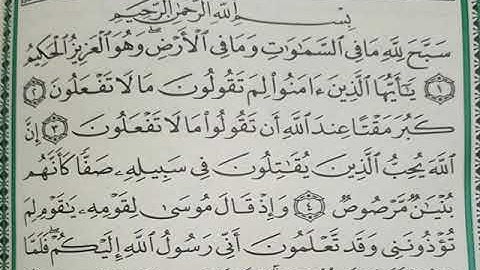 بِسْمِ اللَّهِ الرَّحْمَٰنِ الرَّحِيمِ
سَبَّحَ لِلَّهِ مَا فِي السَّمَاوَاتِ وَمَا فِي الْأَرْضِ ۖ وَهُوَ الْعَزِيزُ الْحَكِيمُ
١ يَا أَيُّهَا الَّذِينَ ءَامَنُوا لِمَ تَقُولُونَ مَا لَا تَفْعَلُونَ ٢
كَبُرَ مَقْتًا عِندَ اللَّهِ أَن تَقُولُوا مَا لَا تَفْعَلُونَ ٣ إِنَّ
اللَّهَ يُحِبُّ الَّذِينَ يُقَاتِلُونَ فِي سَبِيلِهِ صَفًّا كَأَنَّهُم
بُنْيَانٌ مَّرْصُوصٌ ٤ وَإِذْ قَالَ مُوسَىٰ لِقَوْمِهِ يَا قَوْمِ لِمَ
تُؤْذُونَنِي وَقَد تَّعْلَمُونَ أَنِّي رَسُولُ اللَّهِ إِلَيْكُمْ ۖ فَلَمَّا